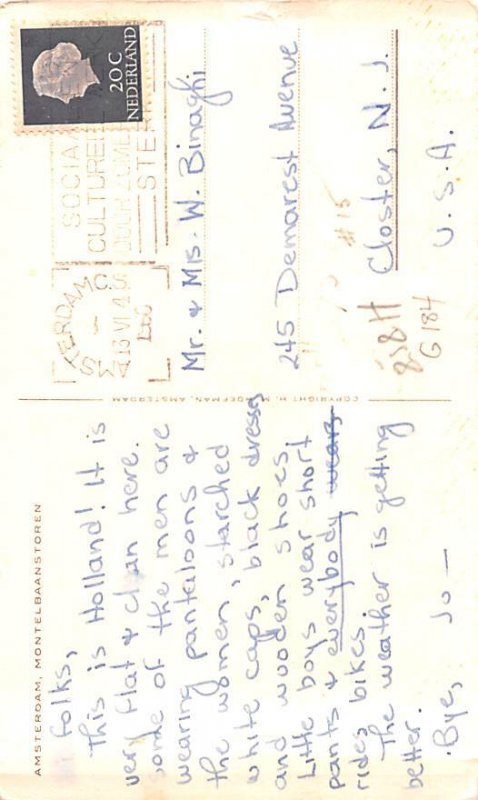 AMSTERDAM, MONTELBAANSTOREN
Folks,
This is Holland! It is
very flat & clean here.
Some of the men are
wearing pantaloons &
the women, starched
white caps, black dresses
and wooden shoes.
Little boys wear short
pants & everybody wears
rides bikes.
The weather is getting
better.
Bye, Jo —
COPYRIGHT H. AMSTERDAM
20C
NEDERLAND
AMSTERDAM C
13 VI 4 S
SOCIA
CULTUREE
DOOR ZOME
STE
Mr. & Mrs. W. Binaghi
245 Demarest Avenue
#15
Closter, N. J.
U. S. A.
G 184